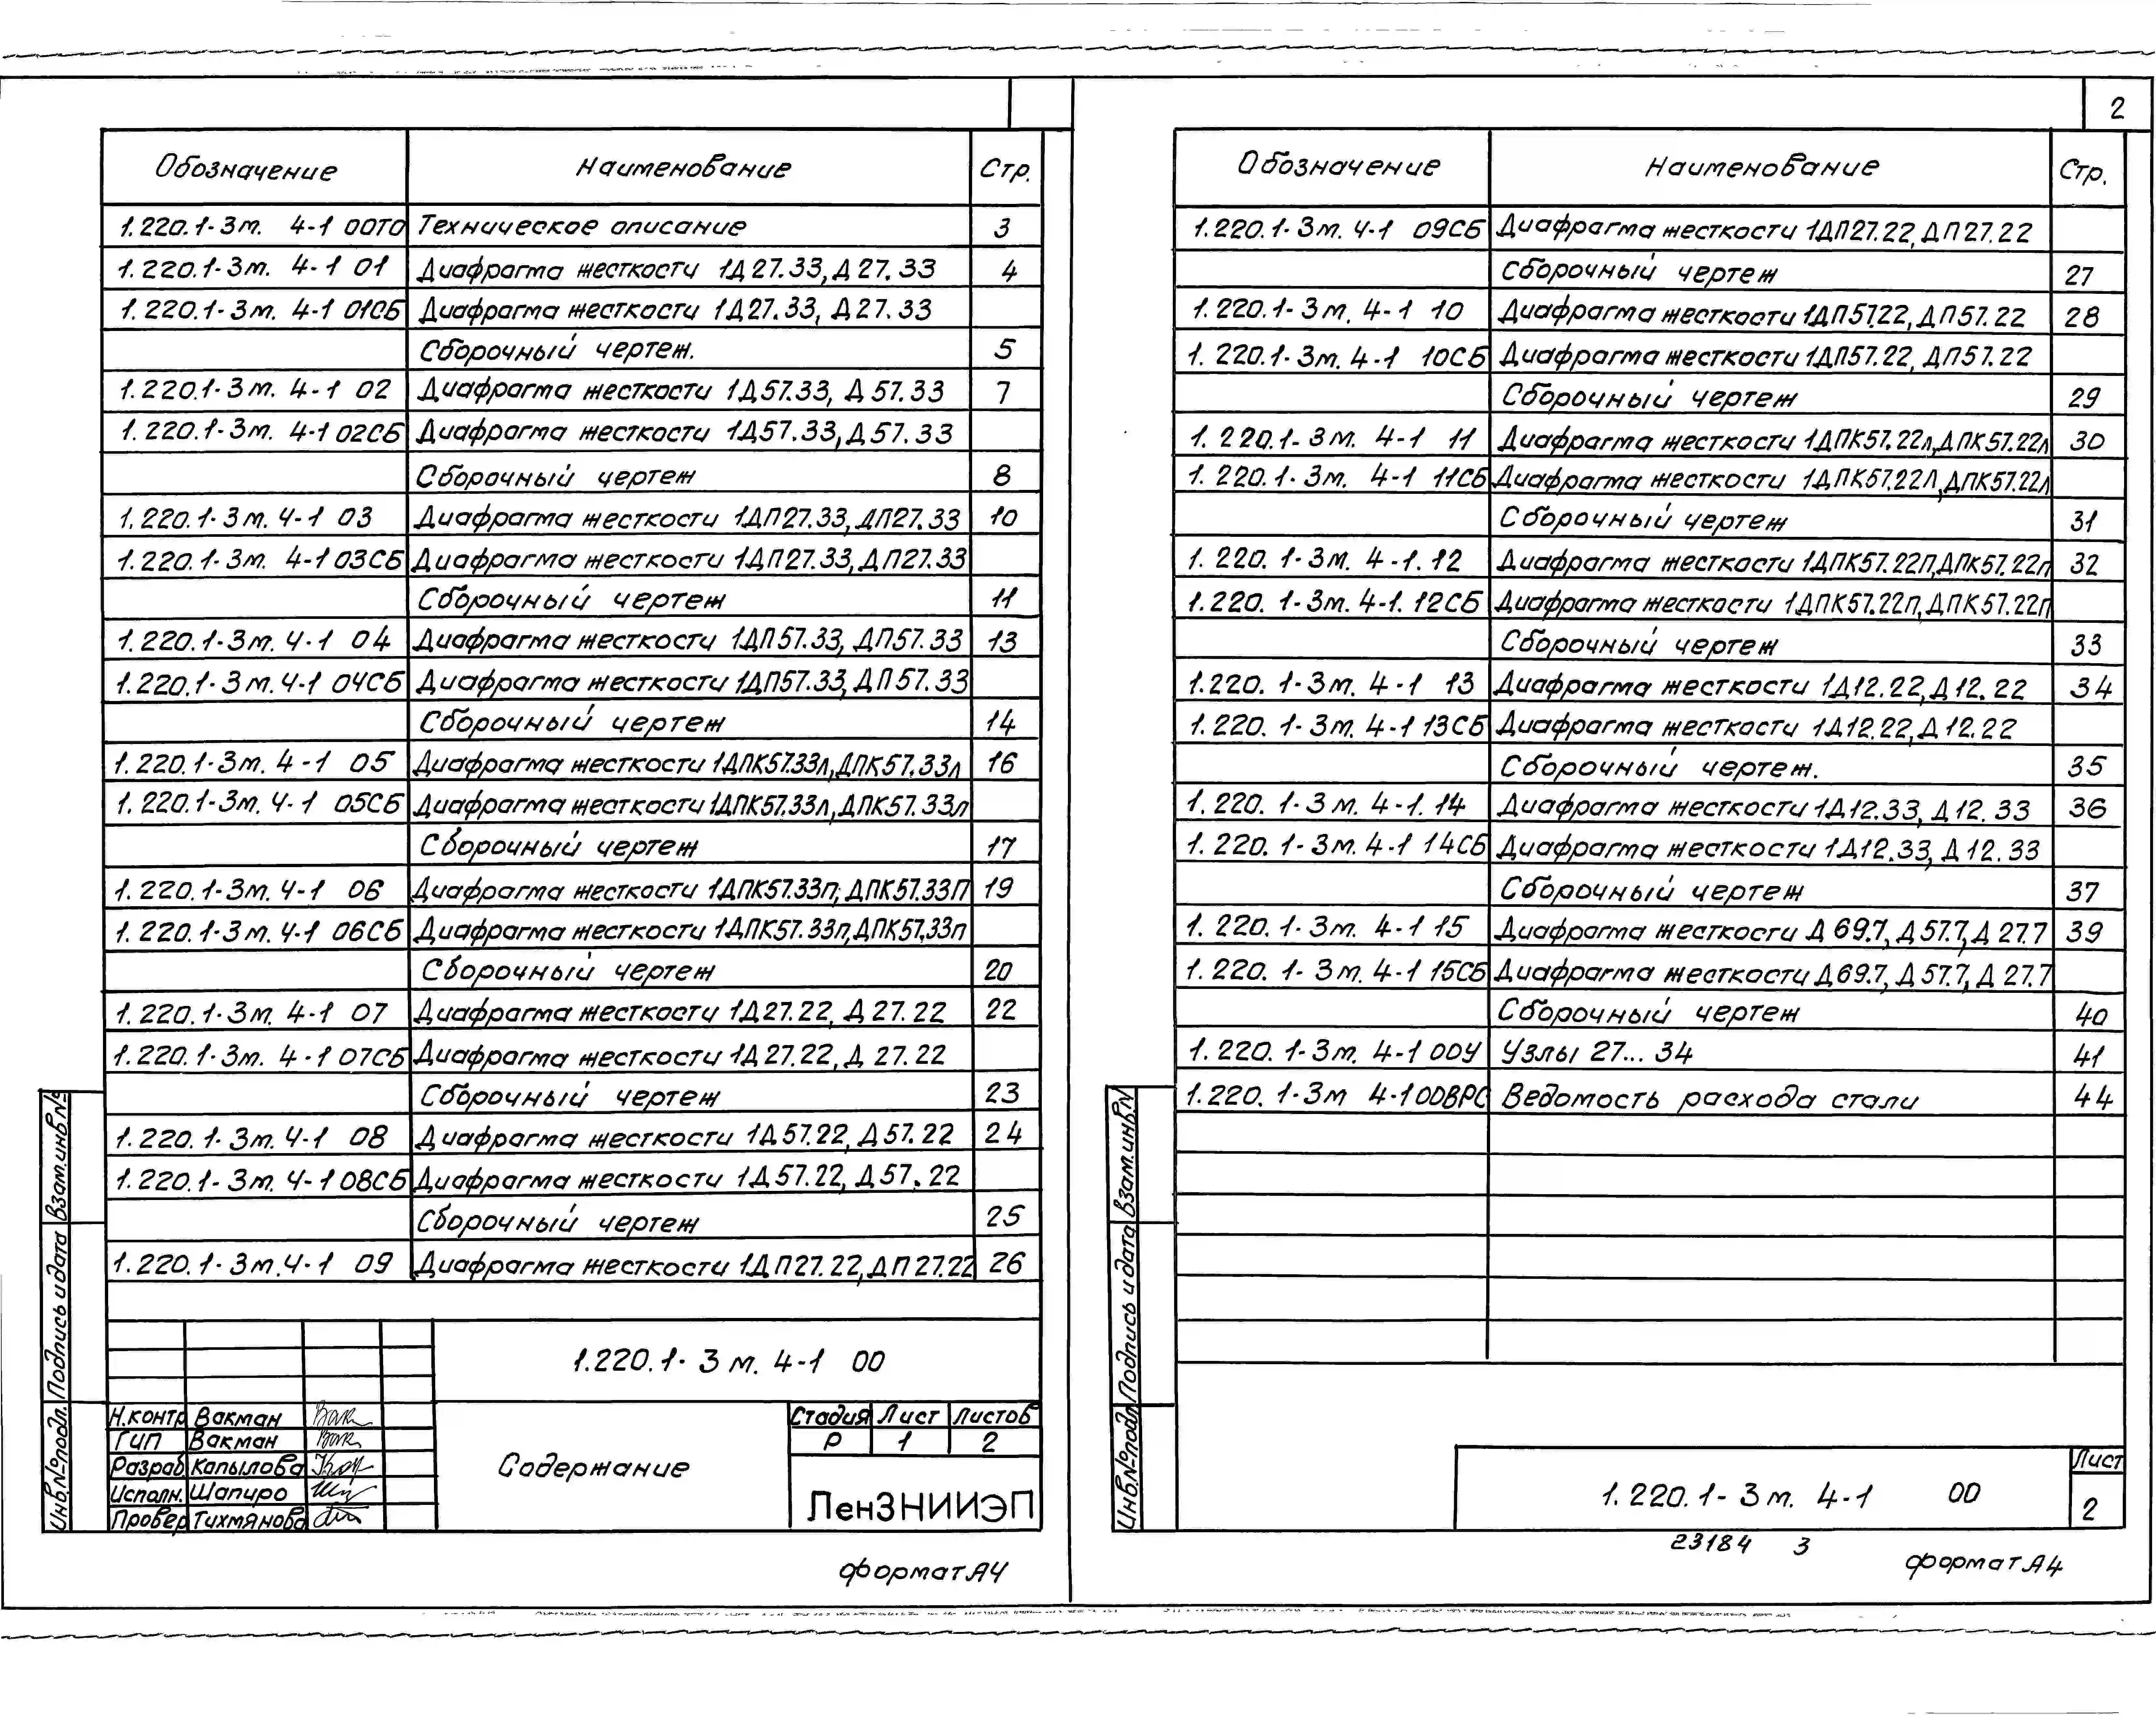 Обозначение Наименование Стр.
1.220.1-3м. 4-1 00ТО Техническое описание 3
1.220.1-3м. 4-1 01 Диафрагма жесткости 1Д27.33, Д27.33 4
1.220.1-3м. 4-1 01СБ Диафрагма жесткости 1Д27.33, Д27.33
Сборочный чертеж. 5
1.220.1-3м. 4-1 02 Диафрагма жесткости 1Д57.33, Д57.33 7
1.220.1-3м. 4-1 02СБ Диафрагма жесткости 1Д57.33, Д57.33
Сборочный чертеж 8
1.220.1-3м. 4-1 03 Диафрагма жесткости 1ДП27.33, ДП27.33 10
1.220.1-3м. 4-1 03СБ Диафрагма жесткости 1ДП27.33, ДП27.33
Сборочный чертеж 11
1.220.1-3м. 4-1 04 Диафрагма жесткости 1ДП57.33, ДП57.33 13
1.220.1-3м. 4-1 04СБ Диафрагма жесткости 1ДП57.33, ДП57.33
Сборочный чертеж 14
1.220.1-3м. 4-1 05 Диафрагма жесткости 1ДПК57.33л, ДПК57.33л 16
1.220.1-3м. 4-1 05СБ Диафрагма жесткости 1ДПК57.33л, ДПК57.33л
Сборочный чертеж 17
1.220.1-3м. 4-1 06 Диафрагма жесткости 1ДПК57.33п; ДПК57.33П 19
1.220.1-3м. 4-1 06СБ Диафрагма жесткости 1ДПК57.33п, ДПК57.33п
Сборочный чертеж 20
1.220.1-3м. 4-1 07 Диафрагма жесткости 1Д27.22, Д27.22 22
1.220.1-3м. 4-1 07СБ Диафрагма жесткости 1Д27.22, Д 27.22
Сборочный чертеж 23
1.220.1-3м. 4-1 08 Диафрагма жесткости 1Д57.22, Д57.22 24
1.220.1-3м. 4-1 08СБ Диафрагма жесткости 1Д57.22, Д57.22
Сборочный чертеж 25
1.220.1-3м. 4-1 09 Диафрагма жесткости 1ДП27.22, ДП27.22 26
1.220.1-3м. 4-1 00
Н.контр Вакман
ГИП Вакман
Разраб Капылова
Исполн. Шапиро
Провер Тихмянова
Содержание
Стадия Лист Листов
Р 1 2
ЛенЗНИИЭП
Взам.инв.№
Подпись и дата
Инв.№подл.
формат А4
2
Обозначение Наименование Стр.
1.220.1-3м. 4-1 09СБ Диафрагма жесткости 1ДП27.22, ДП27.22
Сборочный чертеж 27
1.220.1-3м. 4-1 10 Диафрагма жесткости 1ДП57.22, ДП57.22 28
1.220.1-3м. 4-1 10СБ Диафрагма жесткости 1ДП57.22, ДП57.22
Сборочный чертеж 29
1.220.1-3м. 4-1 11 Диафрагма жесткости 1ДПК57.22л, ДПК57.22л 30
1.220.1-3м. 4-1 11СБ Диафрагма жесткости 1ДПК57.22Л, ДПК57.22л
Сборочный чертеж 31
1.220.1-3м. 4-1.12 Диафрагма жесткости 1ДПК57.22П, ДПК57.22п 32
1.220.1-3м. 4-1.12СБ Диафрагма жесткости 1ДПК57.22п, ДПК57.22п
Сборочный чертеж 33
1.220.1-3м. 4-1 13 Диафрагма жесткости 1Д12.22, Д12.22 34
1.220.1-3м. 4-1 13СБ Диафрагма жесткости 1Д12.22, Д12.22
Сборочный чертеж. 35
1.220.1-3м. 4-1.14 Диафрагма жесткости 1Д12.33, Д12.33 36
1.220.1-3м. 4-1 14СБ Диафрагма жесткости 1Д12.33, Д12.33
Сборочный чертеж 37
1.220.1-3м. 4-1 15 Диафрагма жесткости Д69.7, Д57.7, Д27.7 39
1.220.1-3м. 4-1 15СБ Диафрагма жесткости Д69.7, Д57.7, Д27.7
Сборочный чертеж 40
1.220.1-3м. 4-1 00У Узлы 27... 34 41
1.220.1-3м 4-1 00ВРС Ведомость расхода стали 44
Взам.инв.№
Подпись и дата
Инв.№подл
1.220.1-3м. 4-1 00
Лист
2
23184 3
формат А4